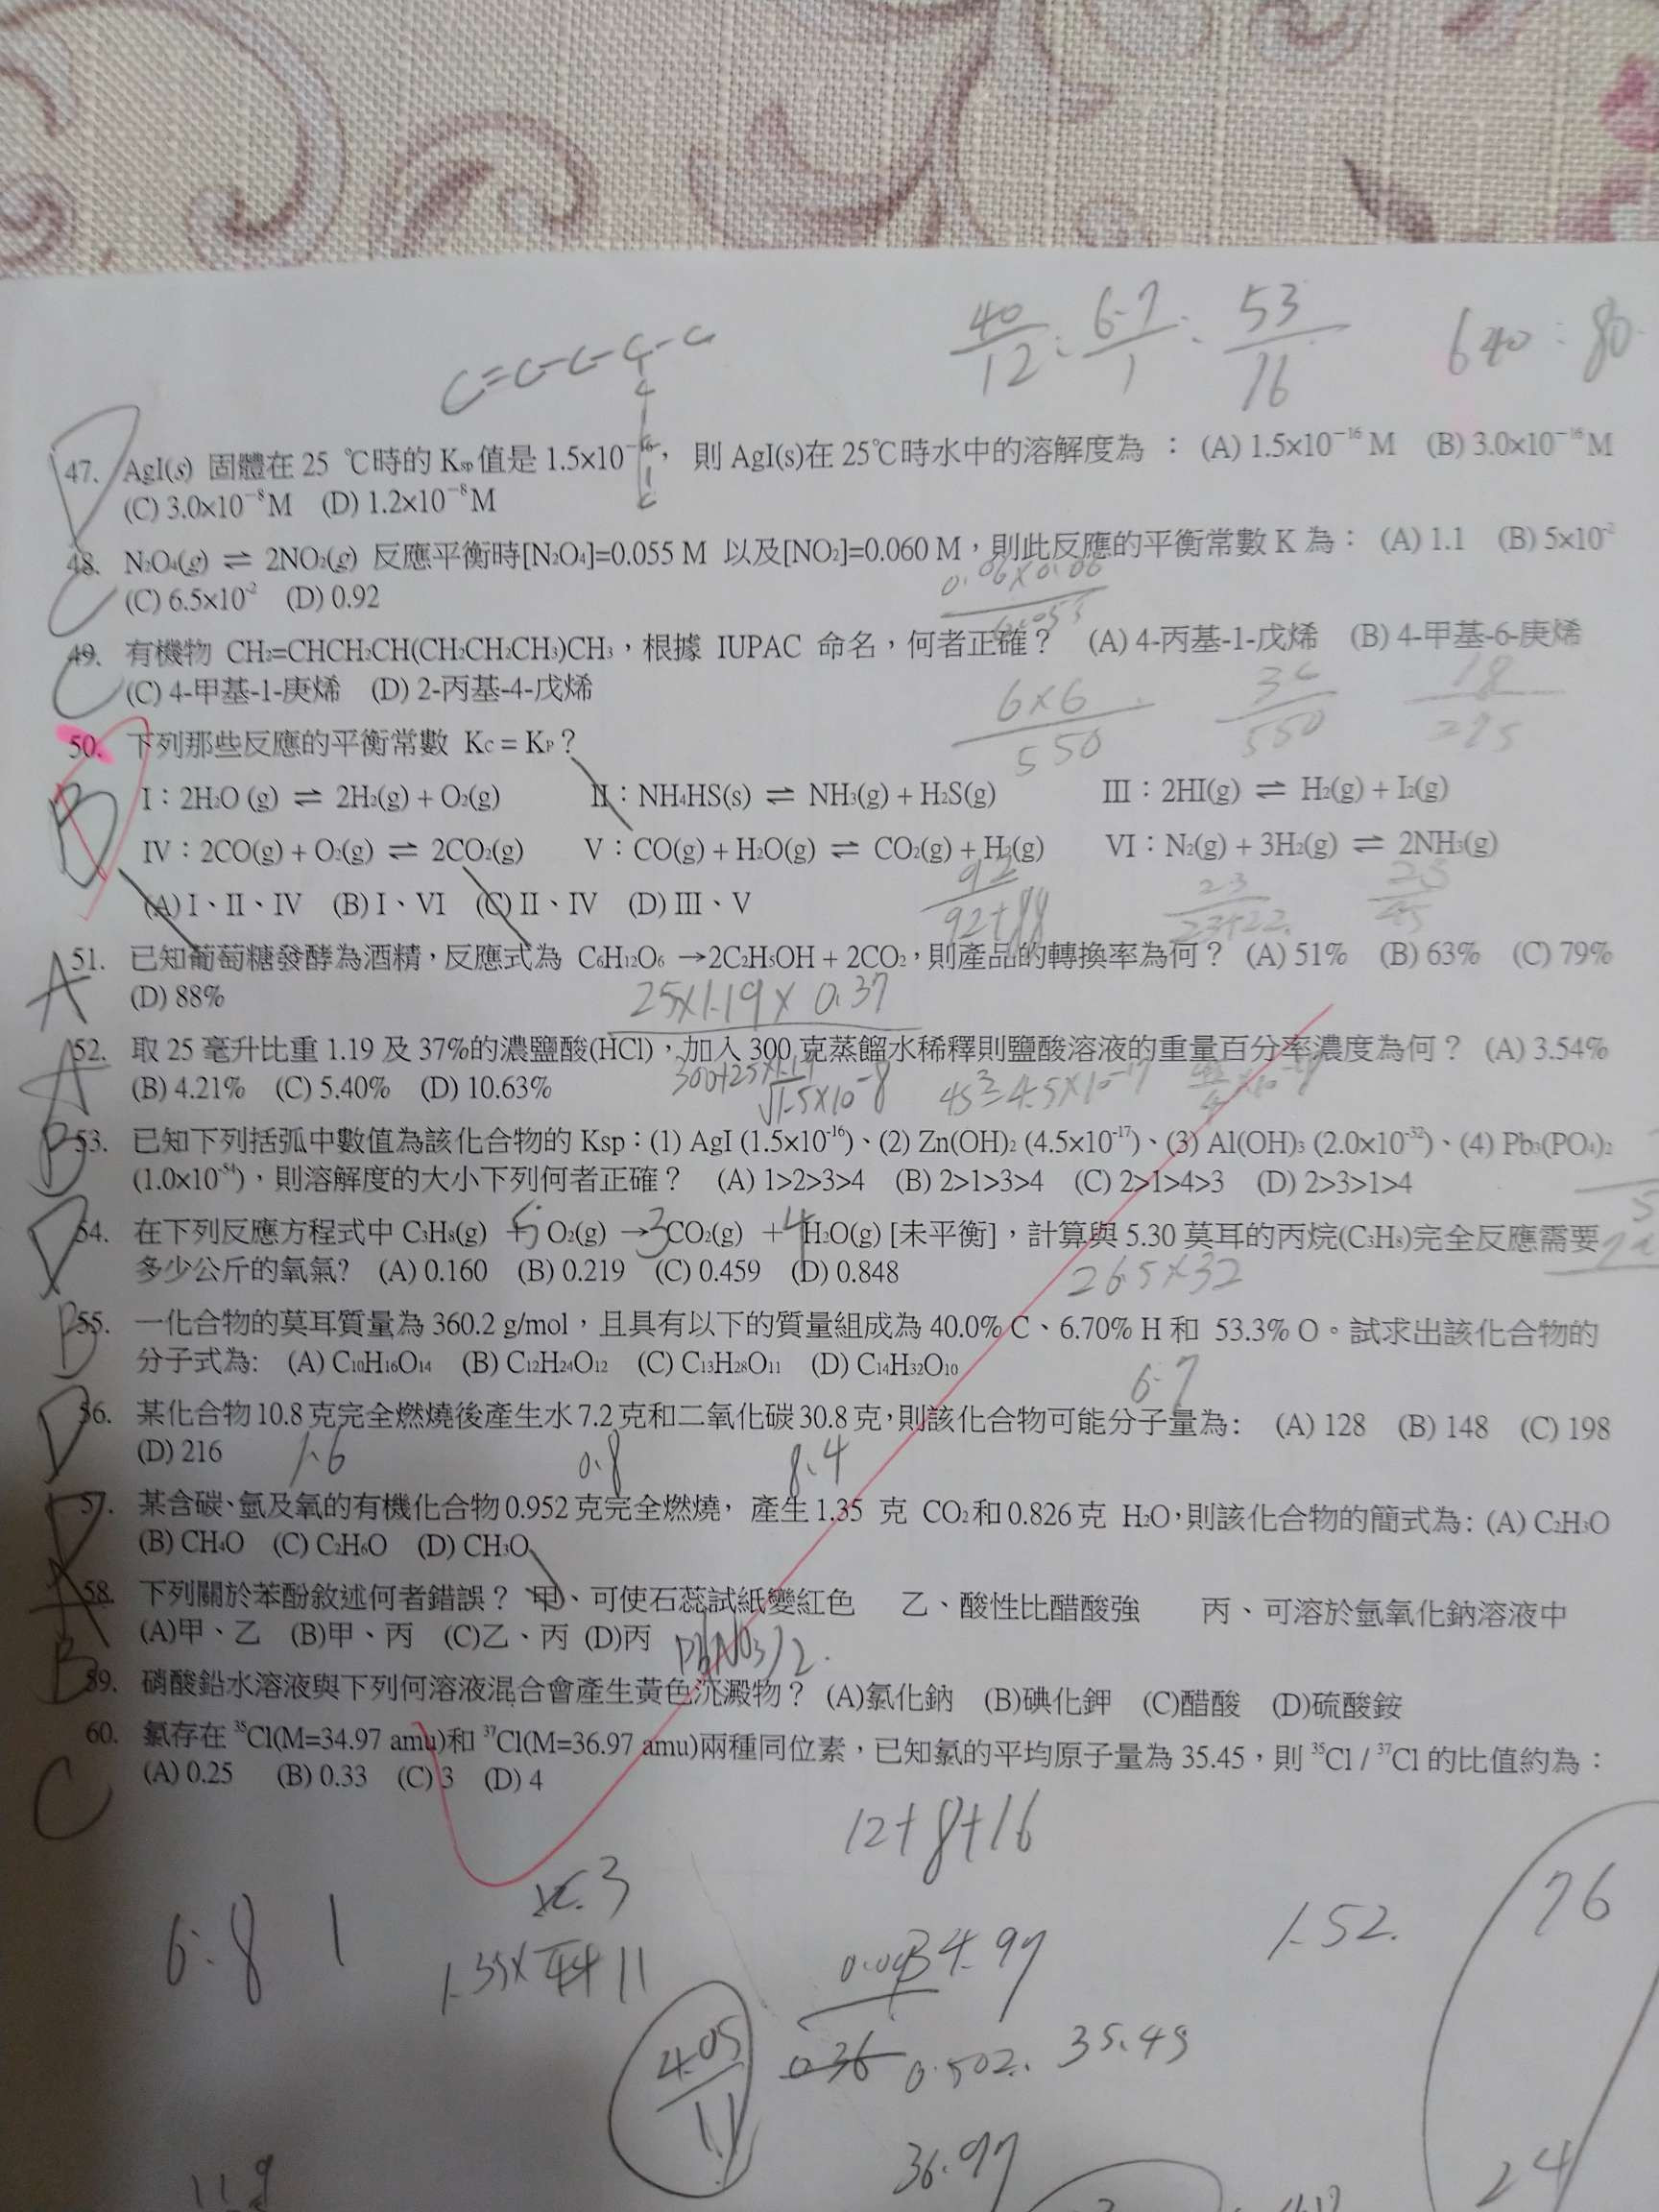 C=C-C-C-C
40/12 : 6.7/1 : 53/16
640 : 80
47. AgI(s) 固體在 25 ℃時的 Ksp值是 1.5×10⁻¹⁶， 則 AgI(s)在 25℃時水中的溶解度為 ： (A) 1.5×10⁻¹⁶ M (B) 3.0×10⁻¹⁶ M
(C) 3.0×10⁻⁸M (D) 1.2×10⁻⁸M
D
48. N₂O₄(g) ⇌ 2NO₂(g) 反應平衡時[N₂O₄]=0.055 M 以及[NO₂]=0.060 M，則此反應的平衡常數 K 為： (A) 1.1 (B) 5×10⁻²
(C) 6.5×10⁻² (D) 0.92
C
0.06×0.06
49. 有機物 CH₂=CHCH₂CH(CH₂CH₂CH₃)CH₃，根據 IUPAC 命名，何者正確？ (A) 4-丙基-1-戊烯 (B) 4-甲基-6-庚烯
(C) 4-甲基-1-庚烯 (D) 2-丙基-4-戊烯
C
6×6/550
36/550
18/275
50. 下列那些反應的平衡常數 Kc = Kp？
I：2H₂O (g) ⇌ 2H₂(g) + O₂(g) II：NH₄HS(s) ⇌ NH₃(g) + H₂S(g) III：2HI(g) ⇌ H₂(g) + I₂(g)
B
IV：2CO(g) + O₂(g) ⇌ 2CO₂(g) V：CO(g) + H₂O(g) ⇌ CO₂(g) + H₂(g) VI：N₂(g) + 3H₂(g) ⇌ 2NH₃(g)
(A) I、II、IV (B) I、VI (C) II、IV (D) III、V
92/92+88
23/23+22
23/45
51. 已知葡萄糖發酵為酒精，反應式為 C₆H₁₂O₆ →2C₂H₅OH + 2CO₂，則產品的轉換率為何？ (A) 51% (B) 63% (C) 79%
(D) 88%
A
25×1.19×0.37
52. 取 25 毫升比重 1.19 及 37%的濃鹽酸(HCl)，加入 300 克蒸餾水稀釋則鹽酸溶液的重量百分率濃度為何？ (A) 3.54%
(B) 4.21% (C) 5.40% (D) 10.63%
A
300+25×1.19
√1.5×10⁻⁸
4S³=4.5×10⁻¹⁷
53. 已知下列括弧中數值為該化合物的 Ksp：(1) AgI (1.5×10⁻¹⁶)、(2) Zn(OH)₂ (4.5×10⁻¹⁷)、(3) Al(OH)₃ (2.0×10⁻³²)、(4) Pb₃(PO₄)₂
(1.0×10⁻⁵⁴)，則溶解度的大小下列何者正確？ (A) 1>2>3>4 (B) 2>1>3>4 (C) 2>1>4>3 (D) 2>3>1>4
B
54. 在下列反應方程式中 C₃H₈(g) + 5 O₂(g) → 3 CO₂(g) + 4 H₂O(g) [未平衡]，計算與 5.30 莫耳的丙烷(C₃H₈)完全反應需要
多少公斤的氧氣? (A) 0.160 (B) 0.219 (C) 0.459 (D) 0.848
D
26.5×32
55. 一化合物的莫耳質量為 360.2 g/mol，且具有以下的質量組成為 40.0% C、6.70% H 和 53.3% O。試求出該化合物的
分子式為: (A) C₁₀H₁₆O₁₄ (B) C₁₂H₂₄O₁₂ (C) C₁₃H₂₈O₁₁ (D) C₁₄H₃₂O₁₀
B
6.7
56. 某化合物 10.8 克完全燃燒後產生水 7.2 克和二氧化碳 30.8 克，則該化合物可能分子量為: (A) 128 (B) 148 (C) 198
(D) 216
D
1.6
0.8
8.4
57. 某含碳、氫及氧的有機化合物 0.952 克完全燃燒， 產生 1.35 克 CO₂ 和 0.826 克 H₂O，則該化合物的簡式為: (A) C₂H₃O
(B) CH₄O (C) C₂H₆O (D) CH₃O
D
58. 下列關於苯酚敘述何者錯誤？ 甲、可使石蕊試紙變紅色 乙、酸性比醋酸強 丙、可溶於氫氧化鈉溶液中
(A)甲、乙 (B)甲、丙 (C)乙、丙 (D)丙
A
Pb(NO₃)₂
59. 硝酸鉛水溶液與下列何溶液混合會產生黃色沉澱物？ (A)氯化鈉 (B)碘化鉀 (C)醋酸 (D)硫酸銨
B
60. 氯存在 ³⁵Cl(M=34.97 amu)和 ³⁷Cl(M=36.97 amu)兩種同位素，已知氯的平均原子量為 35.45，則 ³⁵Cl / ³⁷Cl 的比值約為：
(A) 0.25 (B) 0.33 (C) 3 (D) 4
C
12+8+16
6.8
1
3
1.35×
11
34.97
1.52.
76
4.05/11
0.36
0.502.
35.45
36.97
24